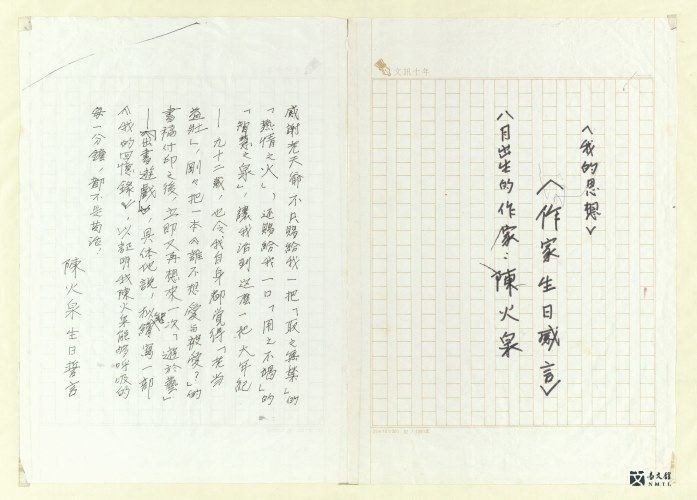 文訊十年
〈我的思想〉
〈作家生日感言〉
八月出生的作家：陳火泉
感謝老天爺不只賜給我一把「取之無禁」的
「熱情之火」，還賜給我一口「用之不竭」的
「智慧之泉」，讓我活到這麼一把大年紀
—九十二歲，也令我自身都覺得「老當
益壯」，剛々把一本《誰不想愛与被愛？》的
書稿付印之後，立即又再想來一次「遊於藝」
—出書遊戲，具体地說，秋續寫一部
《我的回憶錄》，以証明我陳火泉能够呼吸的
每一分鐘，都不是苟活。
陳火泉生日誓言
台文館
NMTL